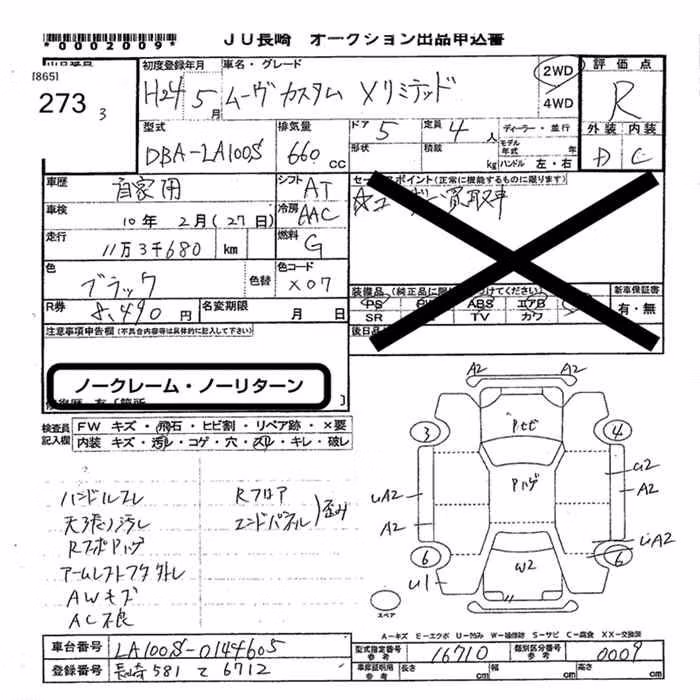 *0002009*
JU長崎 オークション出品申込書
[865]
273 3
初度登録年月
H24 5月
車名・グレード
ムーヴカスタム Xリミテッド
2WD
4WD
評価点
R
外装 内装
D C
型式
DBA-LA100S
排気量
660 cc
ドア 5
定員 4 人
形状
積載 kg
ディーラー・並行
モデル年式 年
ハンドル 左・右
車歴 自家用
シフト AT
セールスポイント(正常に機能するものに限ります)
☆ユーザー買取車
車検 10年 2月(27日)
冷房 AAC
走行 11万3千680 km
燃料 G
色 ブラック 色替
色コード X07
装備品(純正品に限 けてください)
PS ABS エアB
SR TV カワ
新車保証書
有・無
R券 8,490円
名変期限 月 日
後日品
注意事項申告欄(不具合内容等は具体的に記入して下さい)
ノークレーム・ノーリターン
検査員記入欄
FW キズ・飛石・ヒビ割・リペア跡・×要
内装 キズ・汚れ・コゲ・穴・スレ・キレ・破レ
ハンドルスレ
天張り汚レ
RフロアPハゲ
アームレストフタ外レ
AWキズ
AC不良
Rフロア
エンドパネル
歪み
A2 A2
Pトビ
3 4
Pハゲ
G2
UA2 A2
A2
UA2
6 6
W2
U1
スペア
A-キズ E-エクボ U-凹み W-補修跡 S-サビ C-腐食 XX-交換済
車台番号 LA100S-0144605
登録番号 長崎 581 て 6712
型式指定番号 参考 16710
類別区分番号 参考 0009
車庫証明用 参考 長さ cm 幅 cm 高さ cm